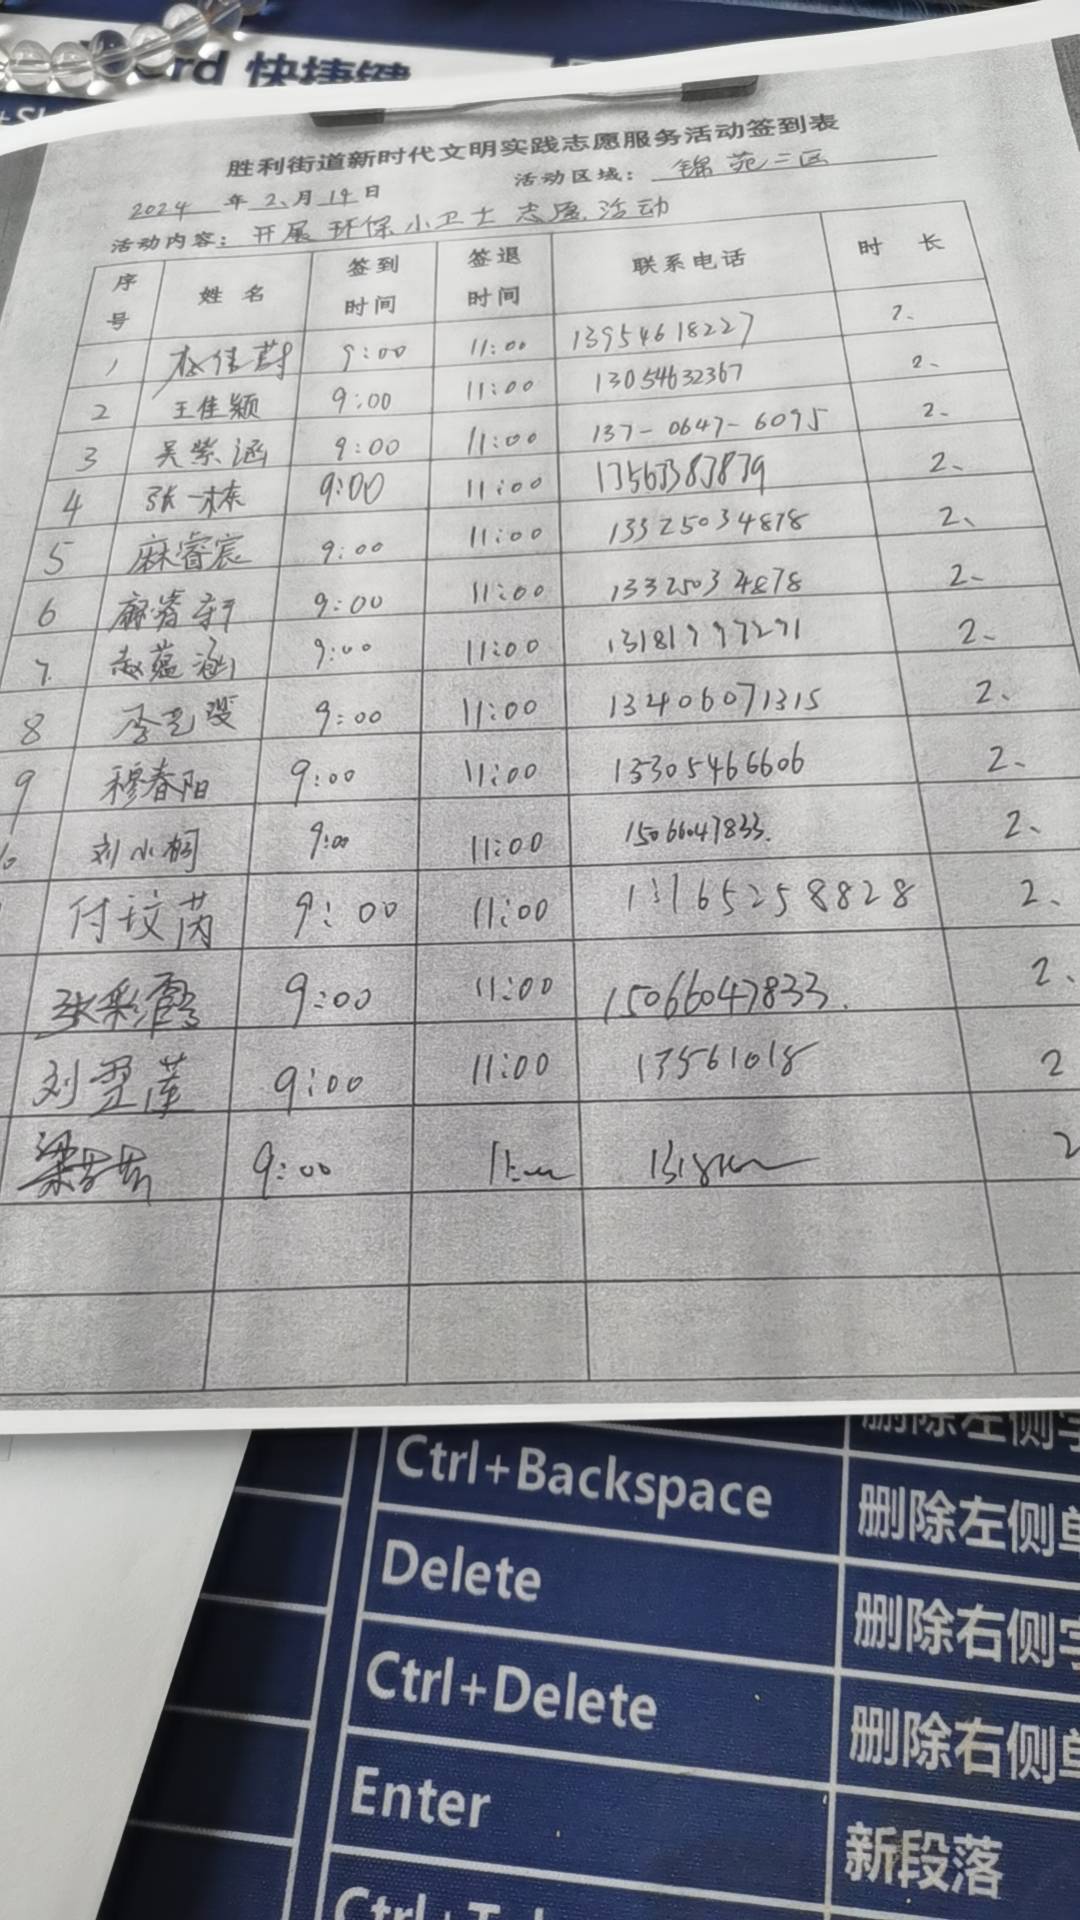 rd 快捷键
胜利街道新时代文明实践志愿服务活动签到表
2024 年 2、月 14 日 活动区域： 锦苑二区
活动内容： 开展环保小卫士志愿活动
序号 姓名 签到时间 签退时间 联系电话 时长
1 9:00 11:00 13954618227 2、
2 王佳颖 9:00 11:00 13054632367 2、
3 吴紫涵 9:00 11:00 137-0647-6095 2、
4 张一栋 9:00 11:00 2、
5 麻睿宸 9:00 11:00 13325034878 2、
6 麻睿轩 9:00 11:00 13325034878 2、
7. 赵蕴涵 9:00 11:00 13181777271 2、
8 李 9:00 11:00 13406071315 2、
9 穆春阳 9:00 11:00 13305466606 2、
刘小桐 9:00 11:00 15066047833. 2、
付玟芮 9:00 11:00 2、
张彩霞 9:00 11:00 15066047833. 2、
刘雯莲 9:00 11:00 13561018 2
梁 9:00 2
删除左侧字
Ctrl+Backspace 删除左侧单
Delete 删除右侧字
Ctrl+Delete 删除右侧单
Enter 新段落